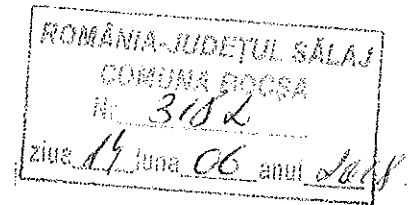 ROMÂNIA-JUDEŢUL SĂLAJ
COMUNA BOCŞA
Nr. 3182
ziua 14 luna 06 anul 2018